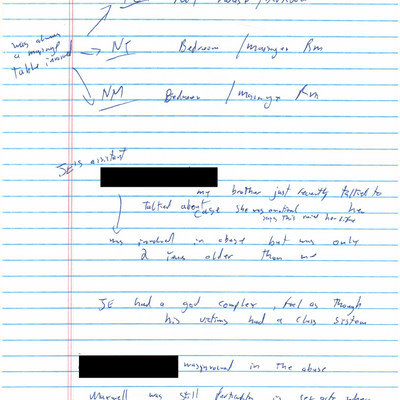 was always
a massage
table involved
NY Bedroom / massage Rm
NM Bedroom / massage Rm
JE's assistant
my brother just recently talked to her
talked about case she was emotional
says this ruined her life
was involved in abuse but was only
2 years older than me
JE had a god complex, feel as though
his victims had a class system
in the abuse
Maxwell was still